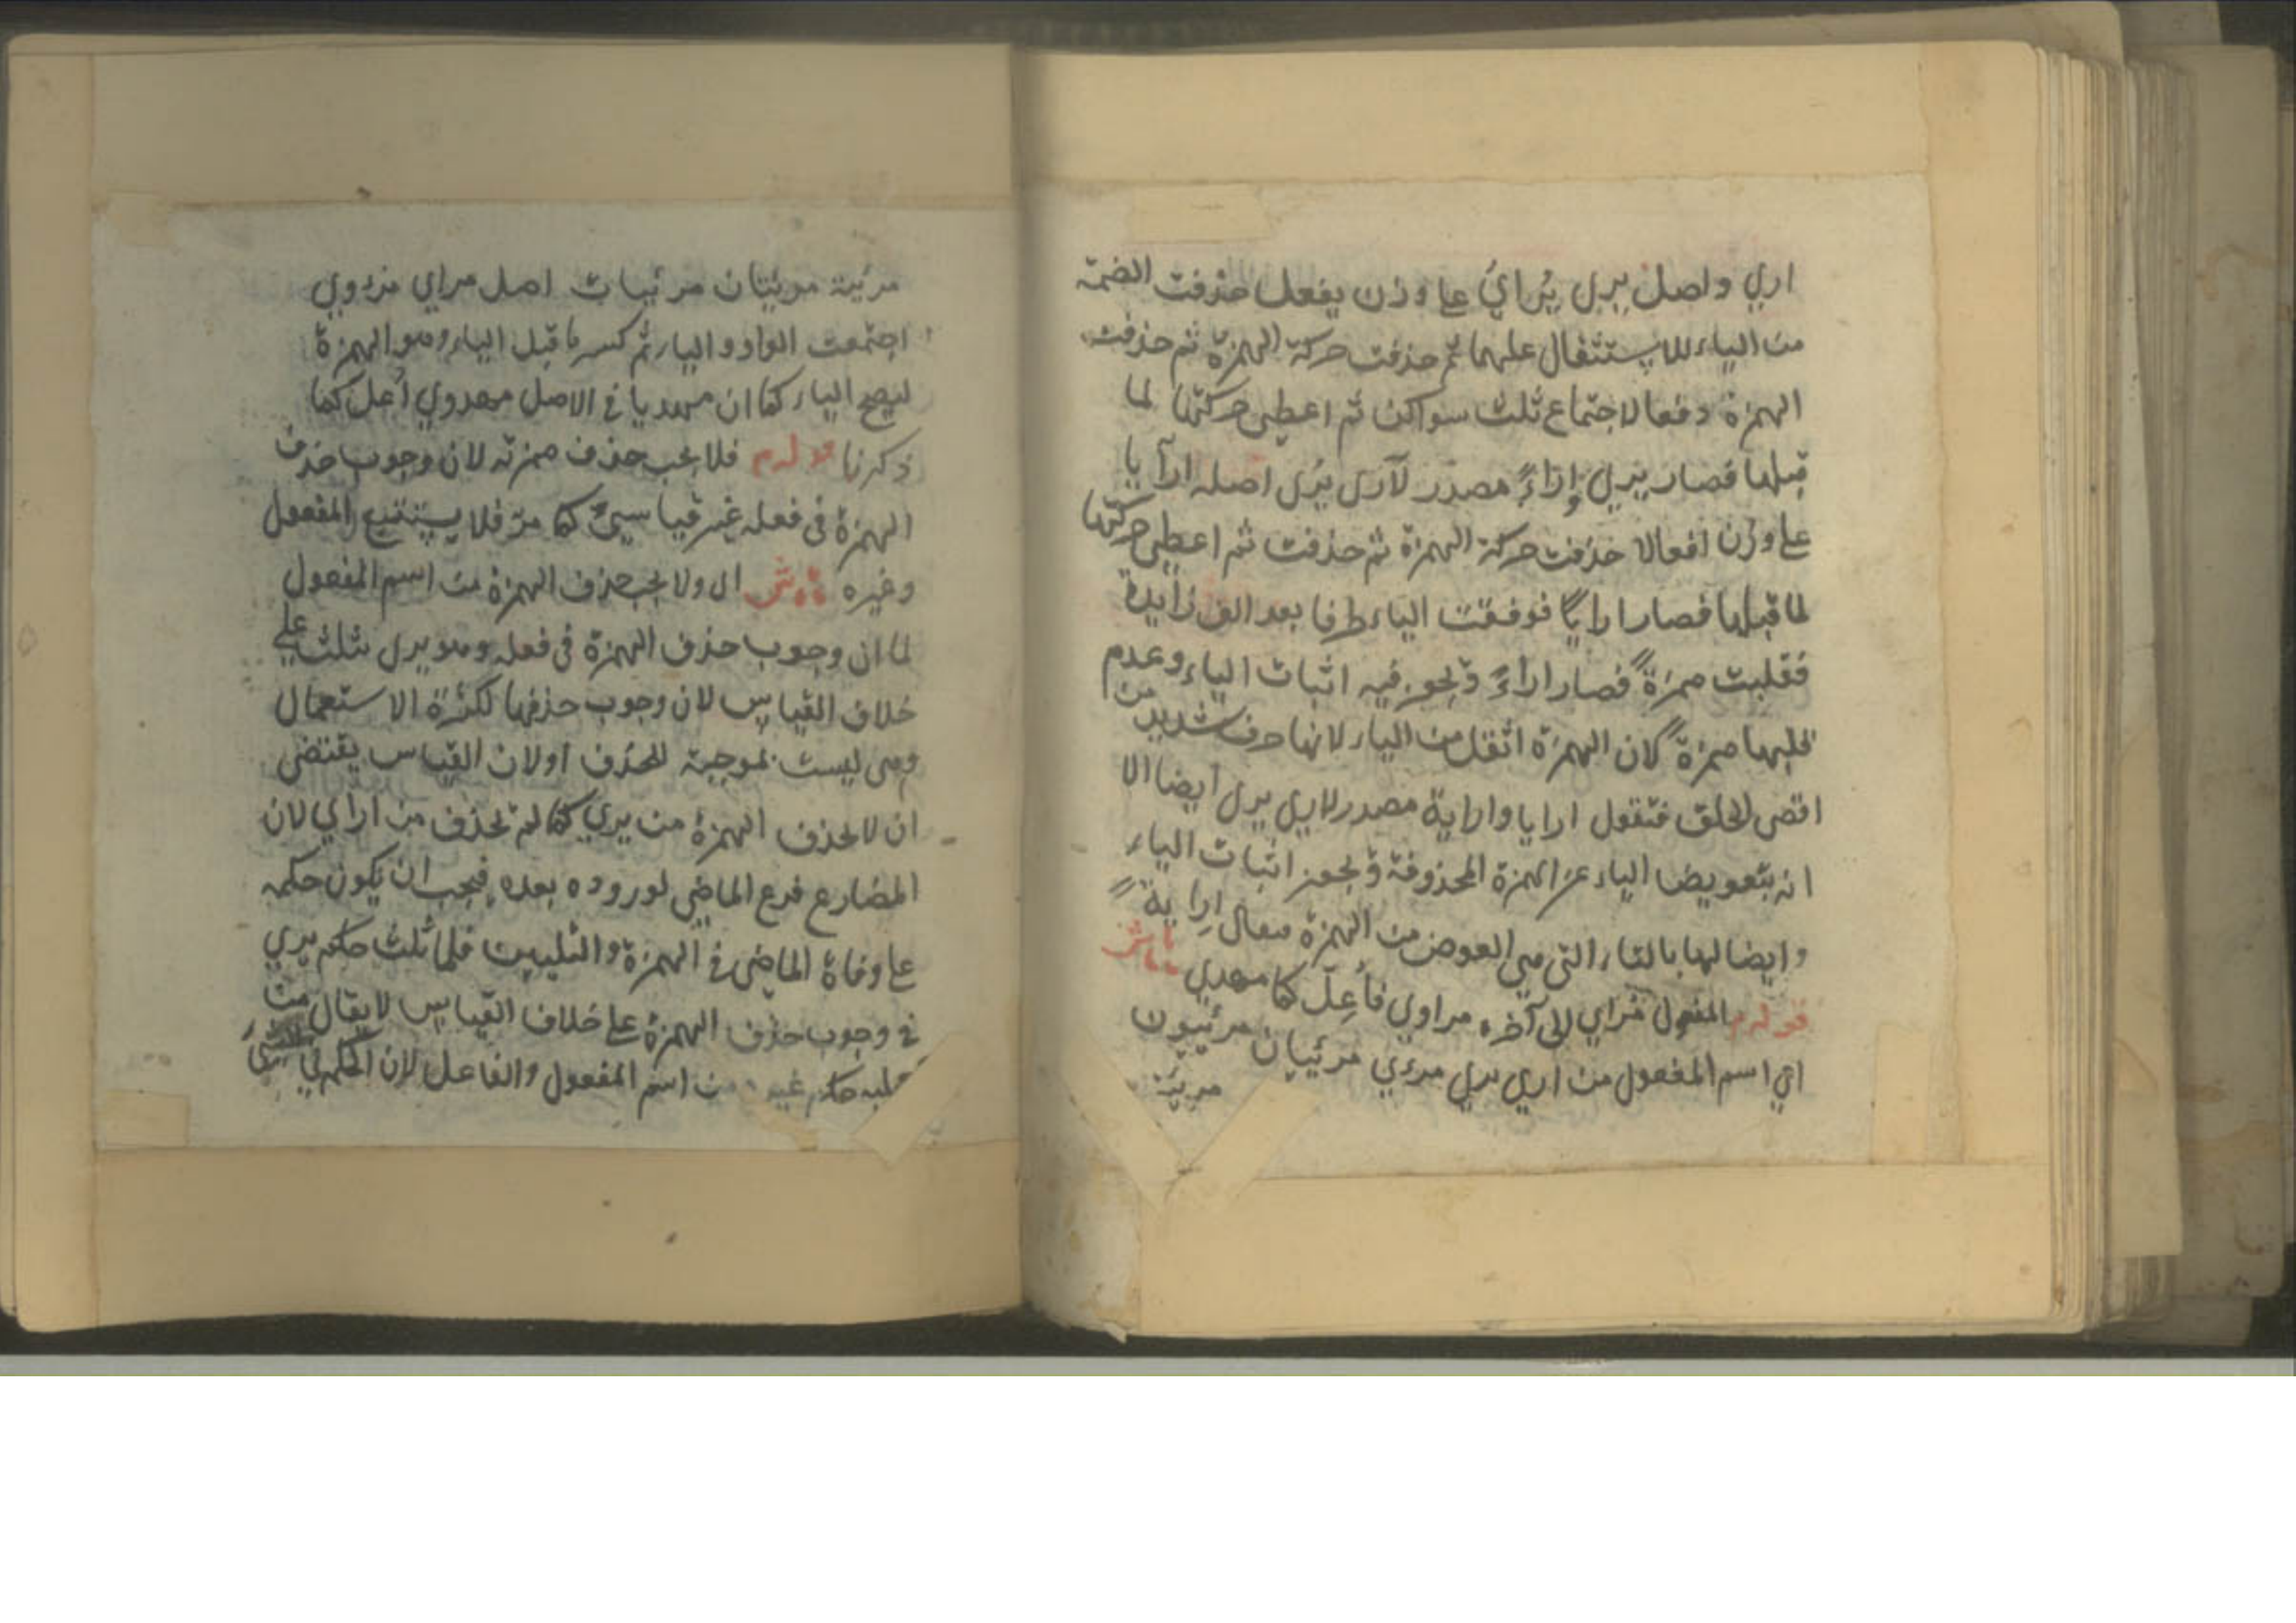 اري واصل يري يُرايُ علي وزن يفعل حذفت الضمة
من الياء للاستثقال عليها ثم حذفت حركة الهمزة ثم حذفت
الهمزة دفعا لاجتماع ثلث سواكن ثم اعطي حركتها لما
قبلها فصار يري واراءً مصدر لاري يري اصله ارآيا
علي وزن افعالا حذفت حركة الهمزة ثم حذفت ثم اعطي حركتها
لما قبلها فصار ارايًا فوقعت الياء طرفا بعد الف زايدة
فقلبت همزة فصار اراءً ويجوز فيه اثبات الياء وعدم
قلبها همزة لان الهمزة اثقل من الياء لانها حرف شديد من
اقصى الحلق فتقول ارايا واراية مصدر لاري يري ايضا الا
انه بتعويض الياء عن الهمزة المحذوفة ويجوز اثبات الياء
وايضا لها بالتاء التي هي العوض من الهمزة فيقال اراية
قوله المفعول مراي الى آخره مراوي فأعِلّ كما مهدي
اي اسم المفعول من اري يري مرءي مرئيان مرئيون
مريئة
مرئية مرئيتان مرئيات اصل مراي مرءوي
اجتمعت الواو والياء ثم كسر ما قبل الياء وهو الهمزة
ليصح الياء كما ان مهديا في الاصل مهدوي أعل كما
ذكرنا قوله م فلا يجب حذف همزته لان وجوب حذف
الهمزة في فعله غير قياسيّ كما مرّ فلا يستتبع المفعول
وغيره ش اي ولا يجب حذف الهمزة من اسم المفعول
لما ان وجوب حذف الهمزة في فعله وهو يري ثلث علي
خلاف القياس لان وجوب حذفها لكثرة الاستعمال
وهي ليست بموجبة للحذف اولان القياس يقتضي
ان لا تحذف الهمزة من يري كما لم تحذف من اراي لان
المضارع فرع الماضي لوروده بعده فيجب ان يكون حكمه
علي وفاة الماضي في الهمزة والتليين فلما ثلث حكم يري
في وجوب حذف الهمزة علي خلاف القياس لا يقال من
عليه حكم غيره من اسم المفعول والفاعل لان الحكم في الشئ